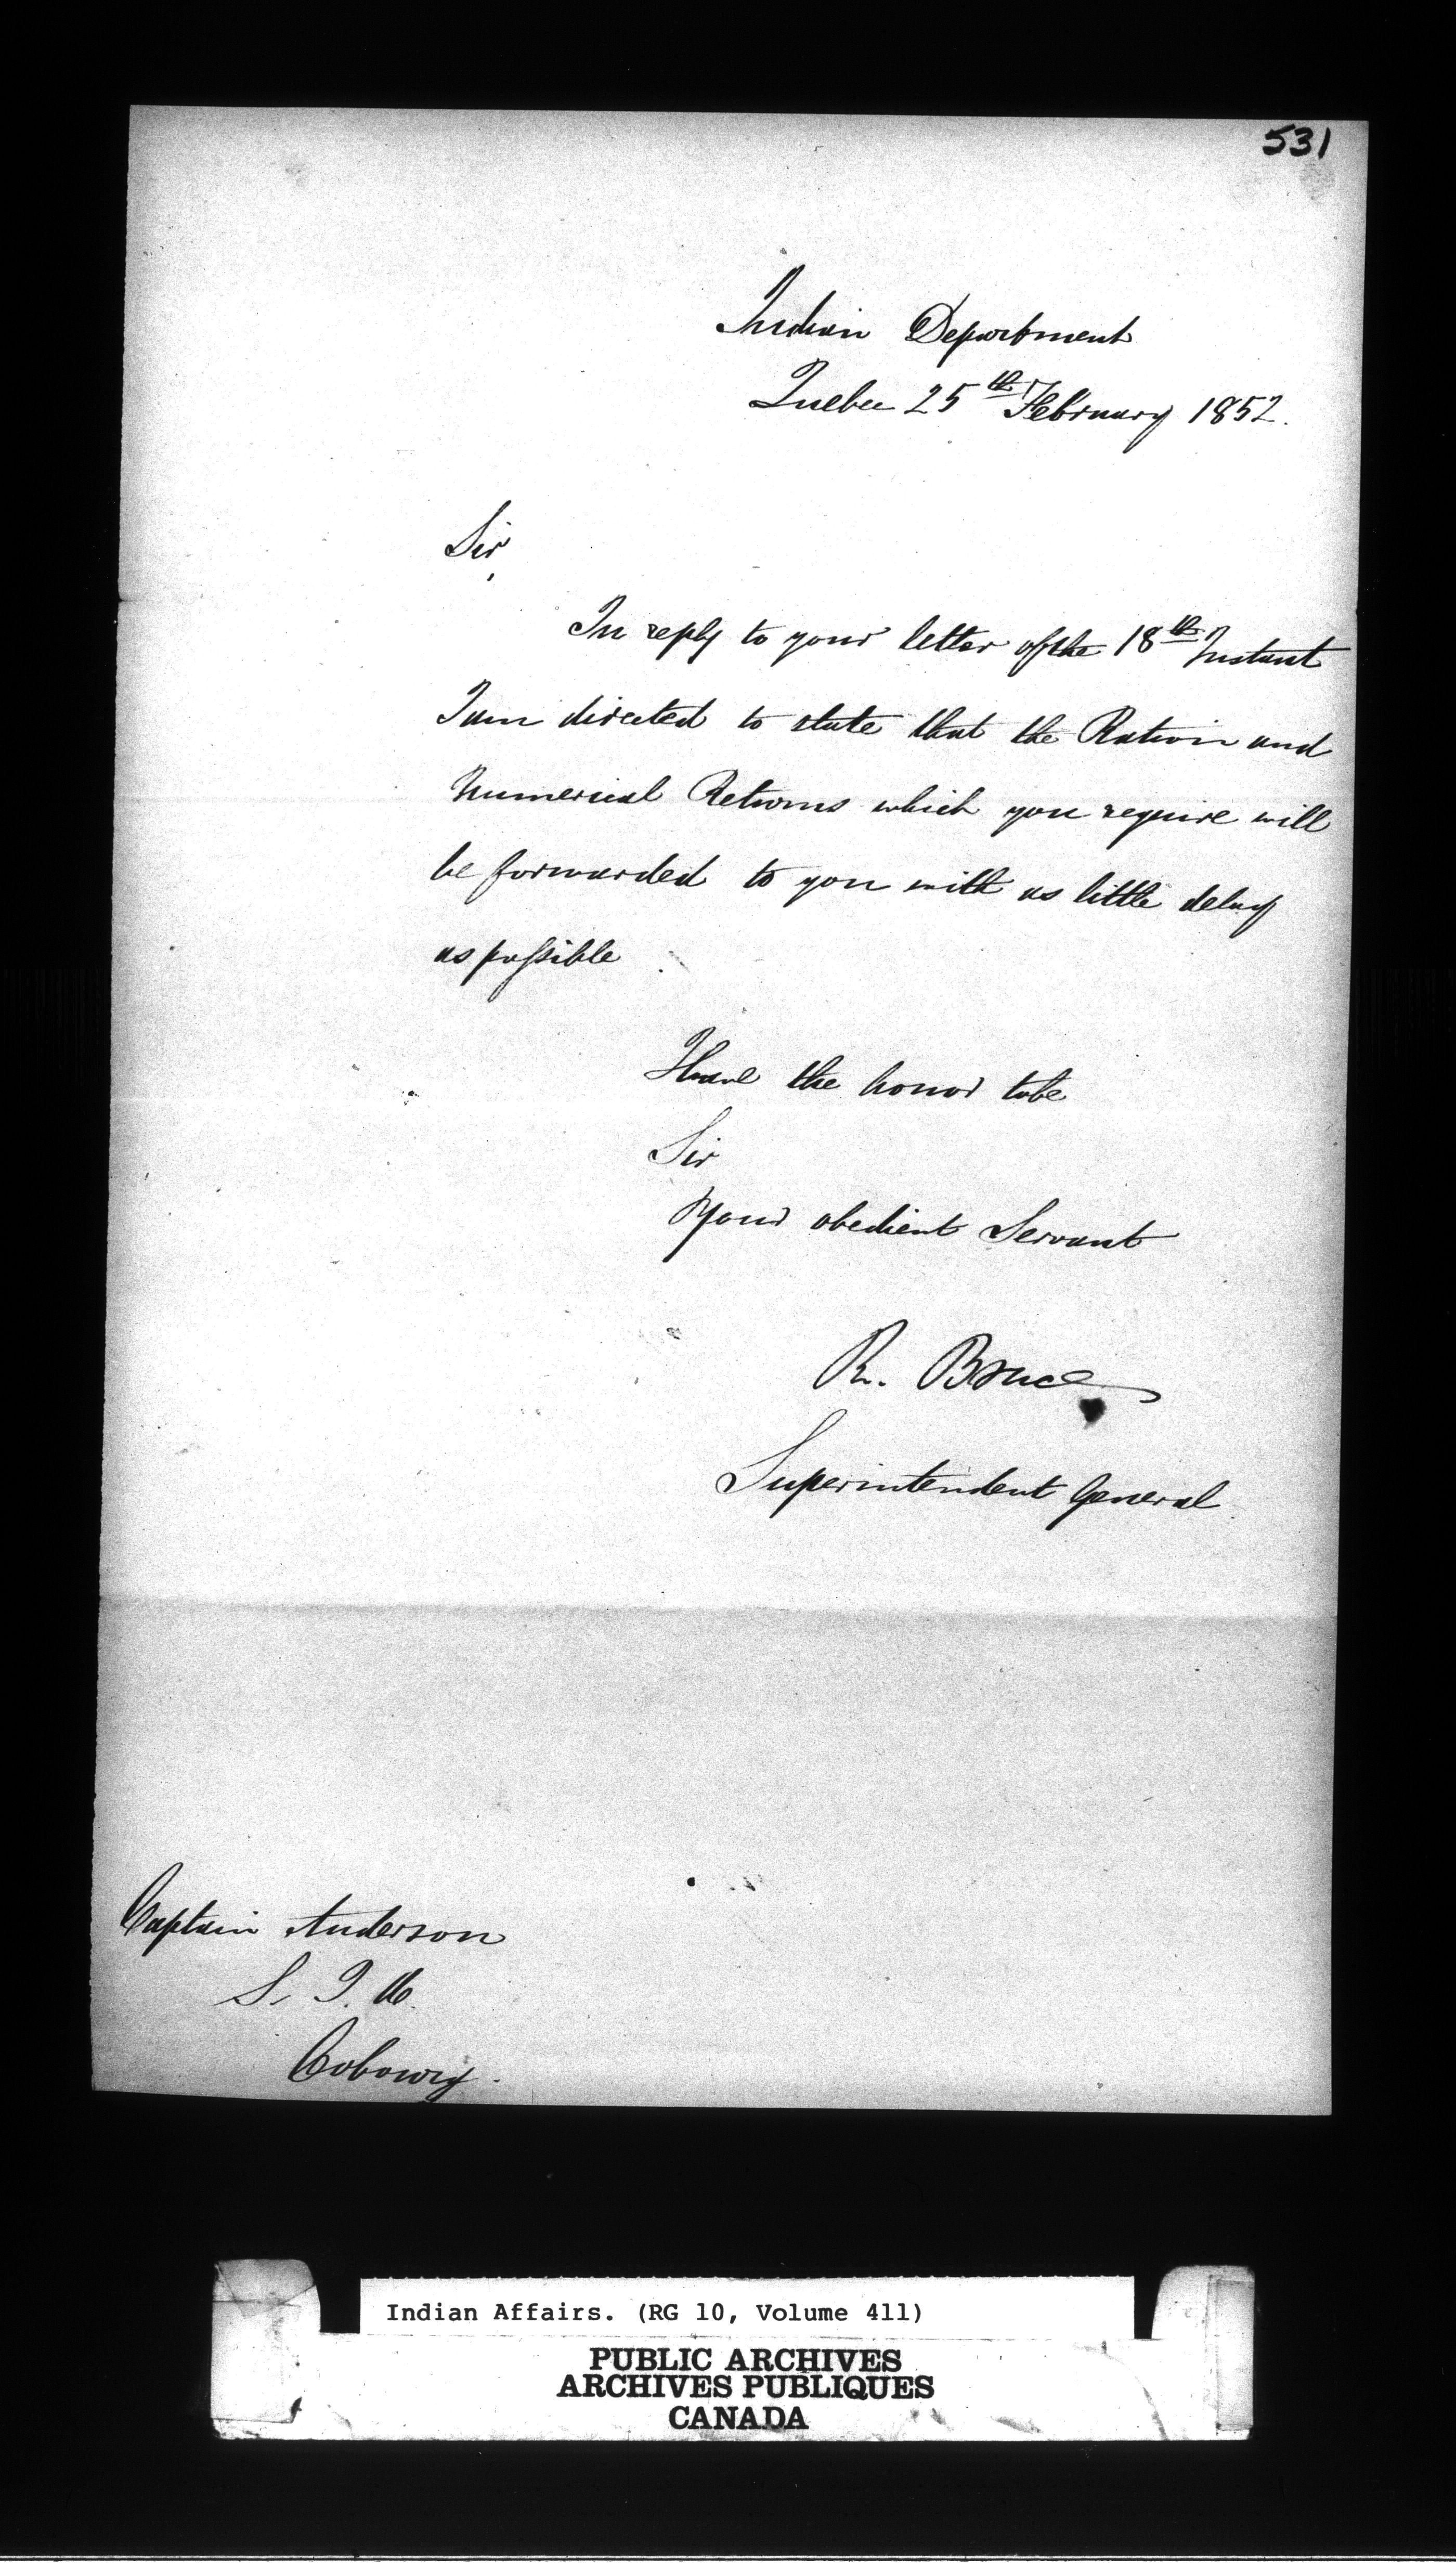 531
Indian Department
Quebec 25th February 1852.
Sir,
In reply to your letter of the 18th Instant
I am directed to state that the Ration and
Numerical Returns which you require will
be forwarded to you with as little delay
as possible
I have the honor to be
Sir
Your obedient Servant
R. Bruce
Superintendent General
Captain Anderson
S. I. A.
Cobourg.
Indian Affairs. (RG 10, Volume 411)
PUBLIC ARCHIVES
ARCHIVES PUBLIQUES
CANADA